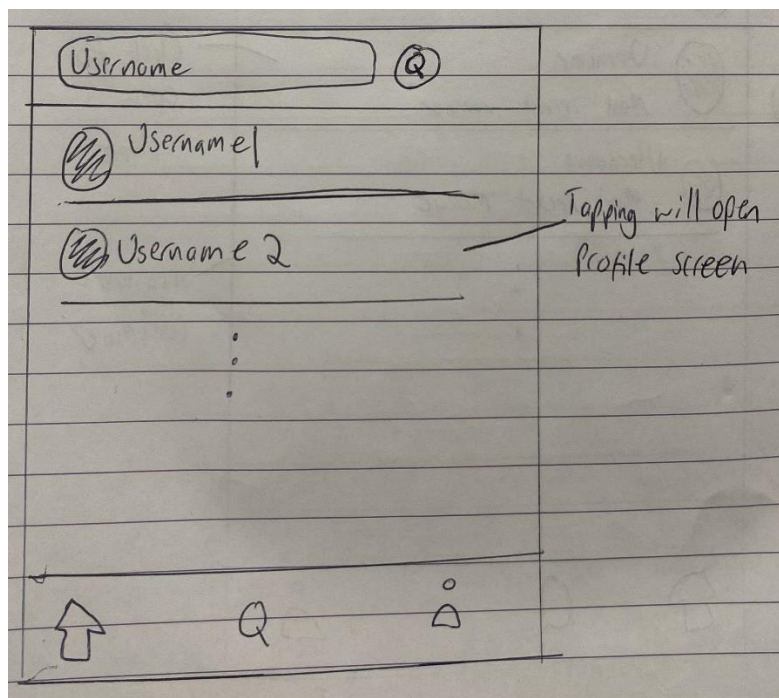 Username
Q
Username1
Username 2
Tapping will open
Profile screen
Q